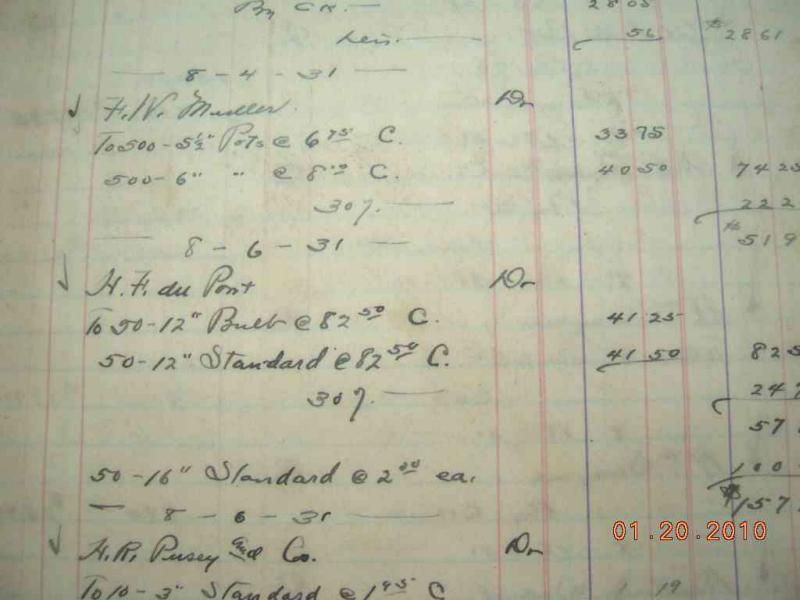 By CK. — 2805
Less. — 56 $2861
— 8 - 4 - 31 —
✓ F. W. Mueller. Dr
To 500 - 5½" Pots @ 6 75 C. 33 75
500 - 6" " @ 8 10 C. 40 50 74 25
30%. — 22 2
— 8 - 6 - 31 — $51 9
✓ H. F. du Pont Dr
To 50 - 12" Bulb @ 82 50 C. 41 25
50 - 12" Standard @ 82 50 C. 41 50 82 5
30%. — 24 7
57
50 - 16" Standard @ 2 00 ea. 100
— 8 - 6 - 31 — $157
✓ H. R. Pusey and Co. Dr
To 10 - 3" Standard @ 1 95 C 19
01.20.2010